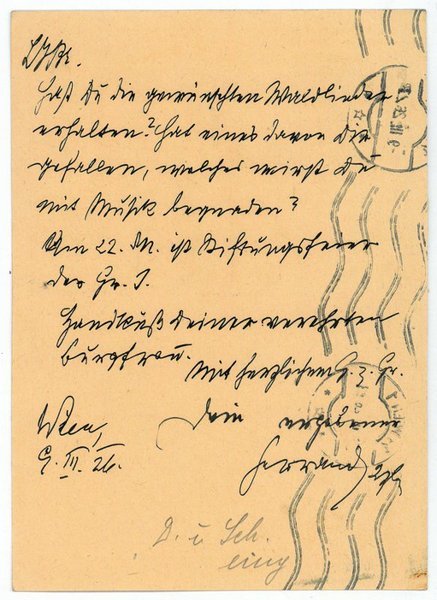 Hast Du die gewünschten Waldlieder
erhalten? Hat eines davon Dir
gefallen, welches wirst Du
mit Musik begnaden?
Am 22. M. ist Stiftungsfeier
der Gr. J.
Handkuß deiner verehrten
Burgfrau.
Mit herzlichem G. z. Gr.
Dein ergebener
Wien,
9. III. 26.
D. u Sch.